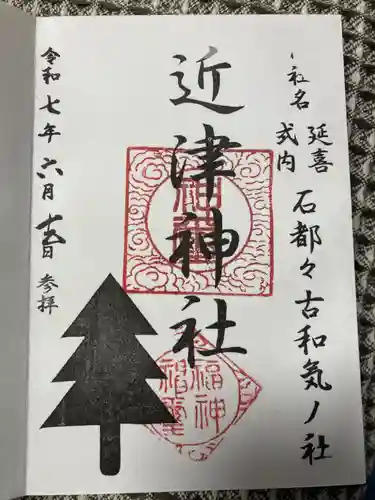 社名
延喜
式内
石都々古和気ノ社
近津神社
令和七年六月
日
参拝
福神